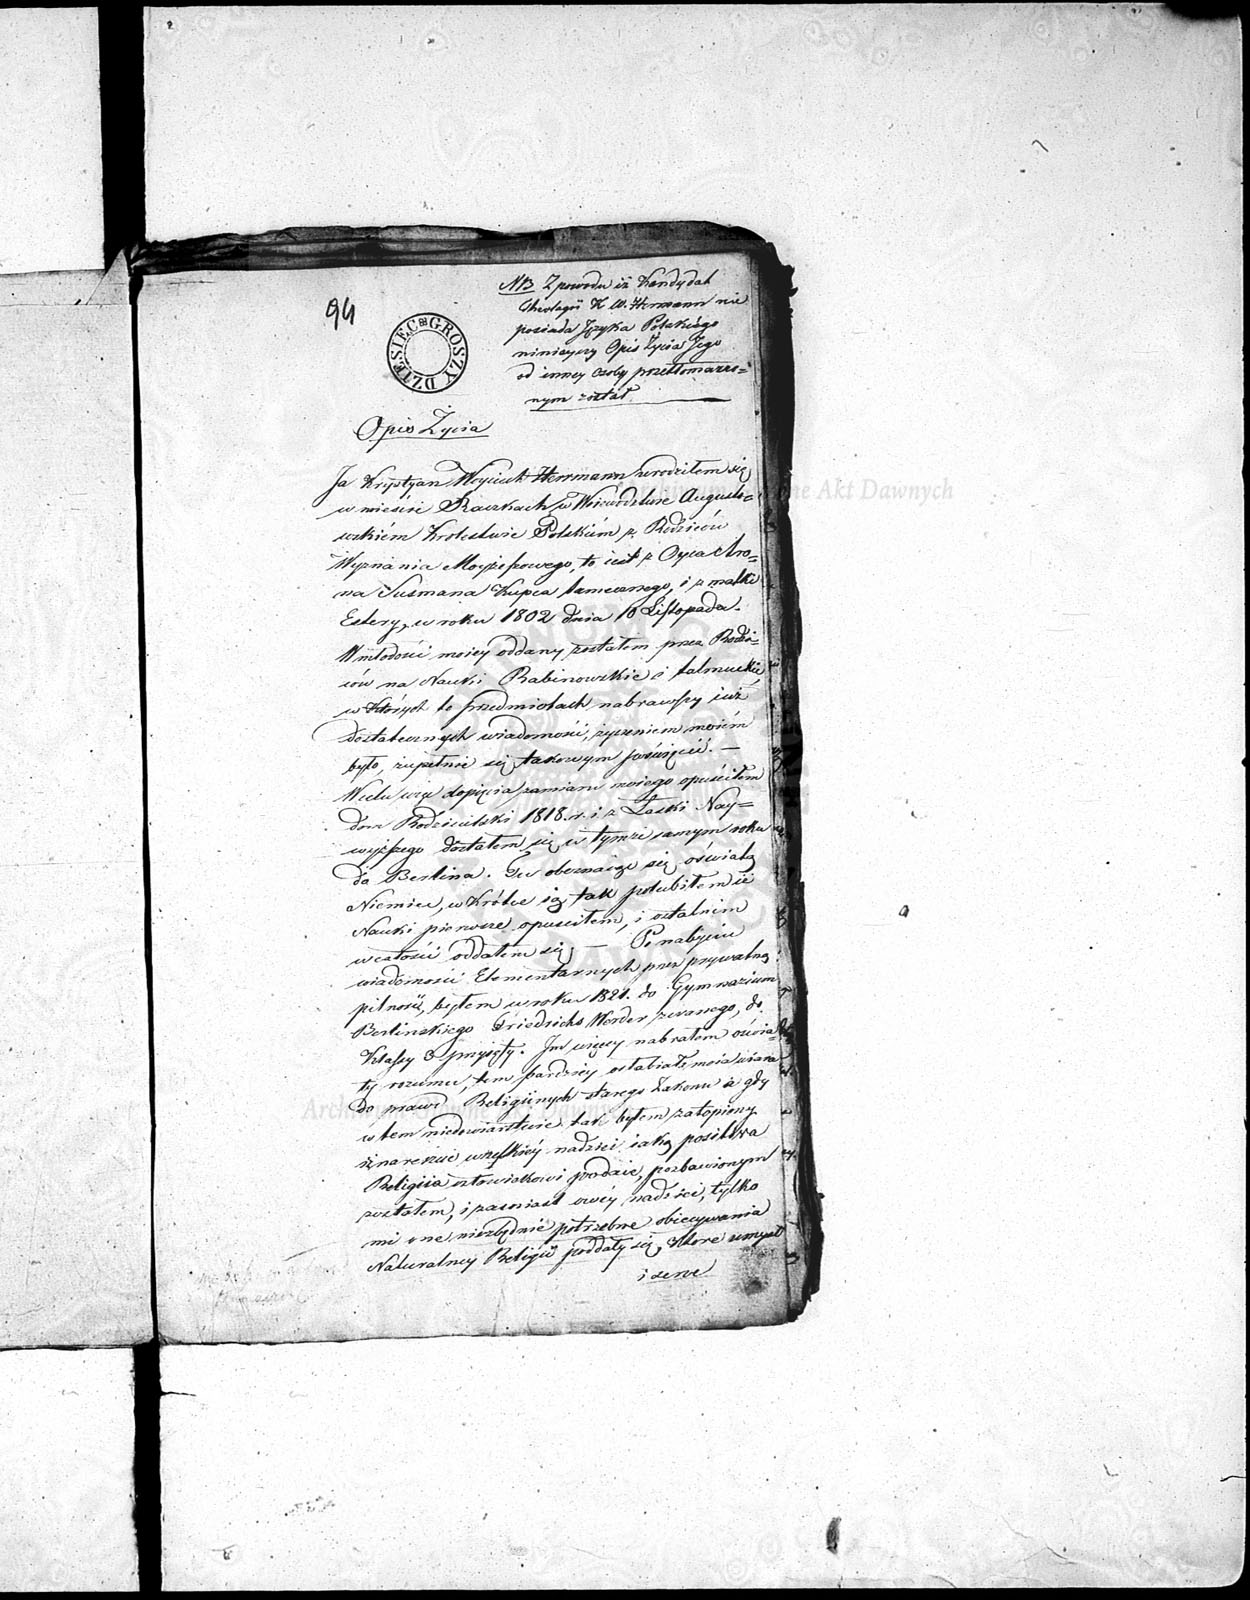 94
DZIESIĘĆ GROSZY
NB Z powodu iż Kandydat
theologii K. W. Hermann nie
posiada Języka Polskiégo
ninieyszy Opis Życia Jego
od inney osoby przetłomaczo=
nym został.
Opis Życia
Ja Krystyan Woyciech Herrmann urodziłem się
w mieście Raczkach w Woiewództwie Augusto=
wskiém Królestwie Polskiém z Rodziców
Wyznania Moyżeszowego, to iest z Oyca Aro=
na Susmana Kupca tamecznego, i z matki
Estery, w roku 1802 dnia 10 Listopada.
W młodości moiey oddany zostałem przez Rodzi=
ców na Nauki Rabinowskie i talmuckie
w których to przedmiotach nabrawszy iuż
dostatecznych wiadomości, życzeniem moiém
było, zupełnie się takowym poświęcić. —
W celu więc dopięcia zamiaru moiego opuściłem
dom Rodzicielski 1818. r. i z Łaski Nay=
wyższego dostałem się w tymże samym roku
do Berlina. Tu obeznaiąc się oświatą
Niemiec, w krótce ią tak polubiłem iż
Nauki pierwsze opuściłem, i ostatnim
w całości oddałem się — Po nabyciu
wiadomości Elementarnych przez prywatną
pilność, byłem w roku 1821. do Gymnazium
Berlinskiego Friedrichs Werder zwanego, do
Klassy 3 przyięty. Im więcey nabrałem oświa=
ty rozumu, tem bardziey osłabiałe moia wiara
do prawd Religiinych starego Zakonu a gdy
w tem niedowiarstwie tak byłem zatopiony
iż nareście wszelkiéy nadziei iaką posiłkwa
Religiia człowiekowi podaie, pozbawionym
zostałem, i zamiast owéy nadziei, tylko
mi one niezbędnie potrzebne obiecywania
Naturalney Religii poddały się, które umysł
i serce
Archiwum Główne Akt Dawnych
Archiwum Główne Akt Dawnych